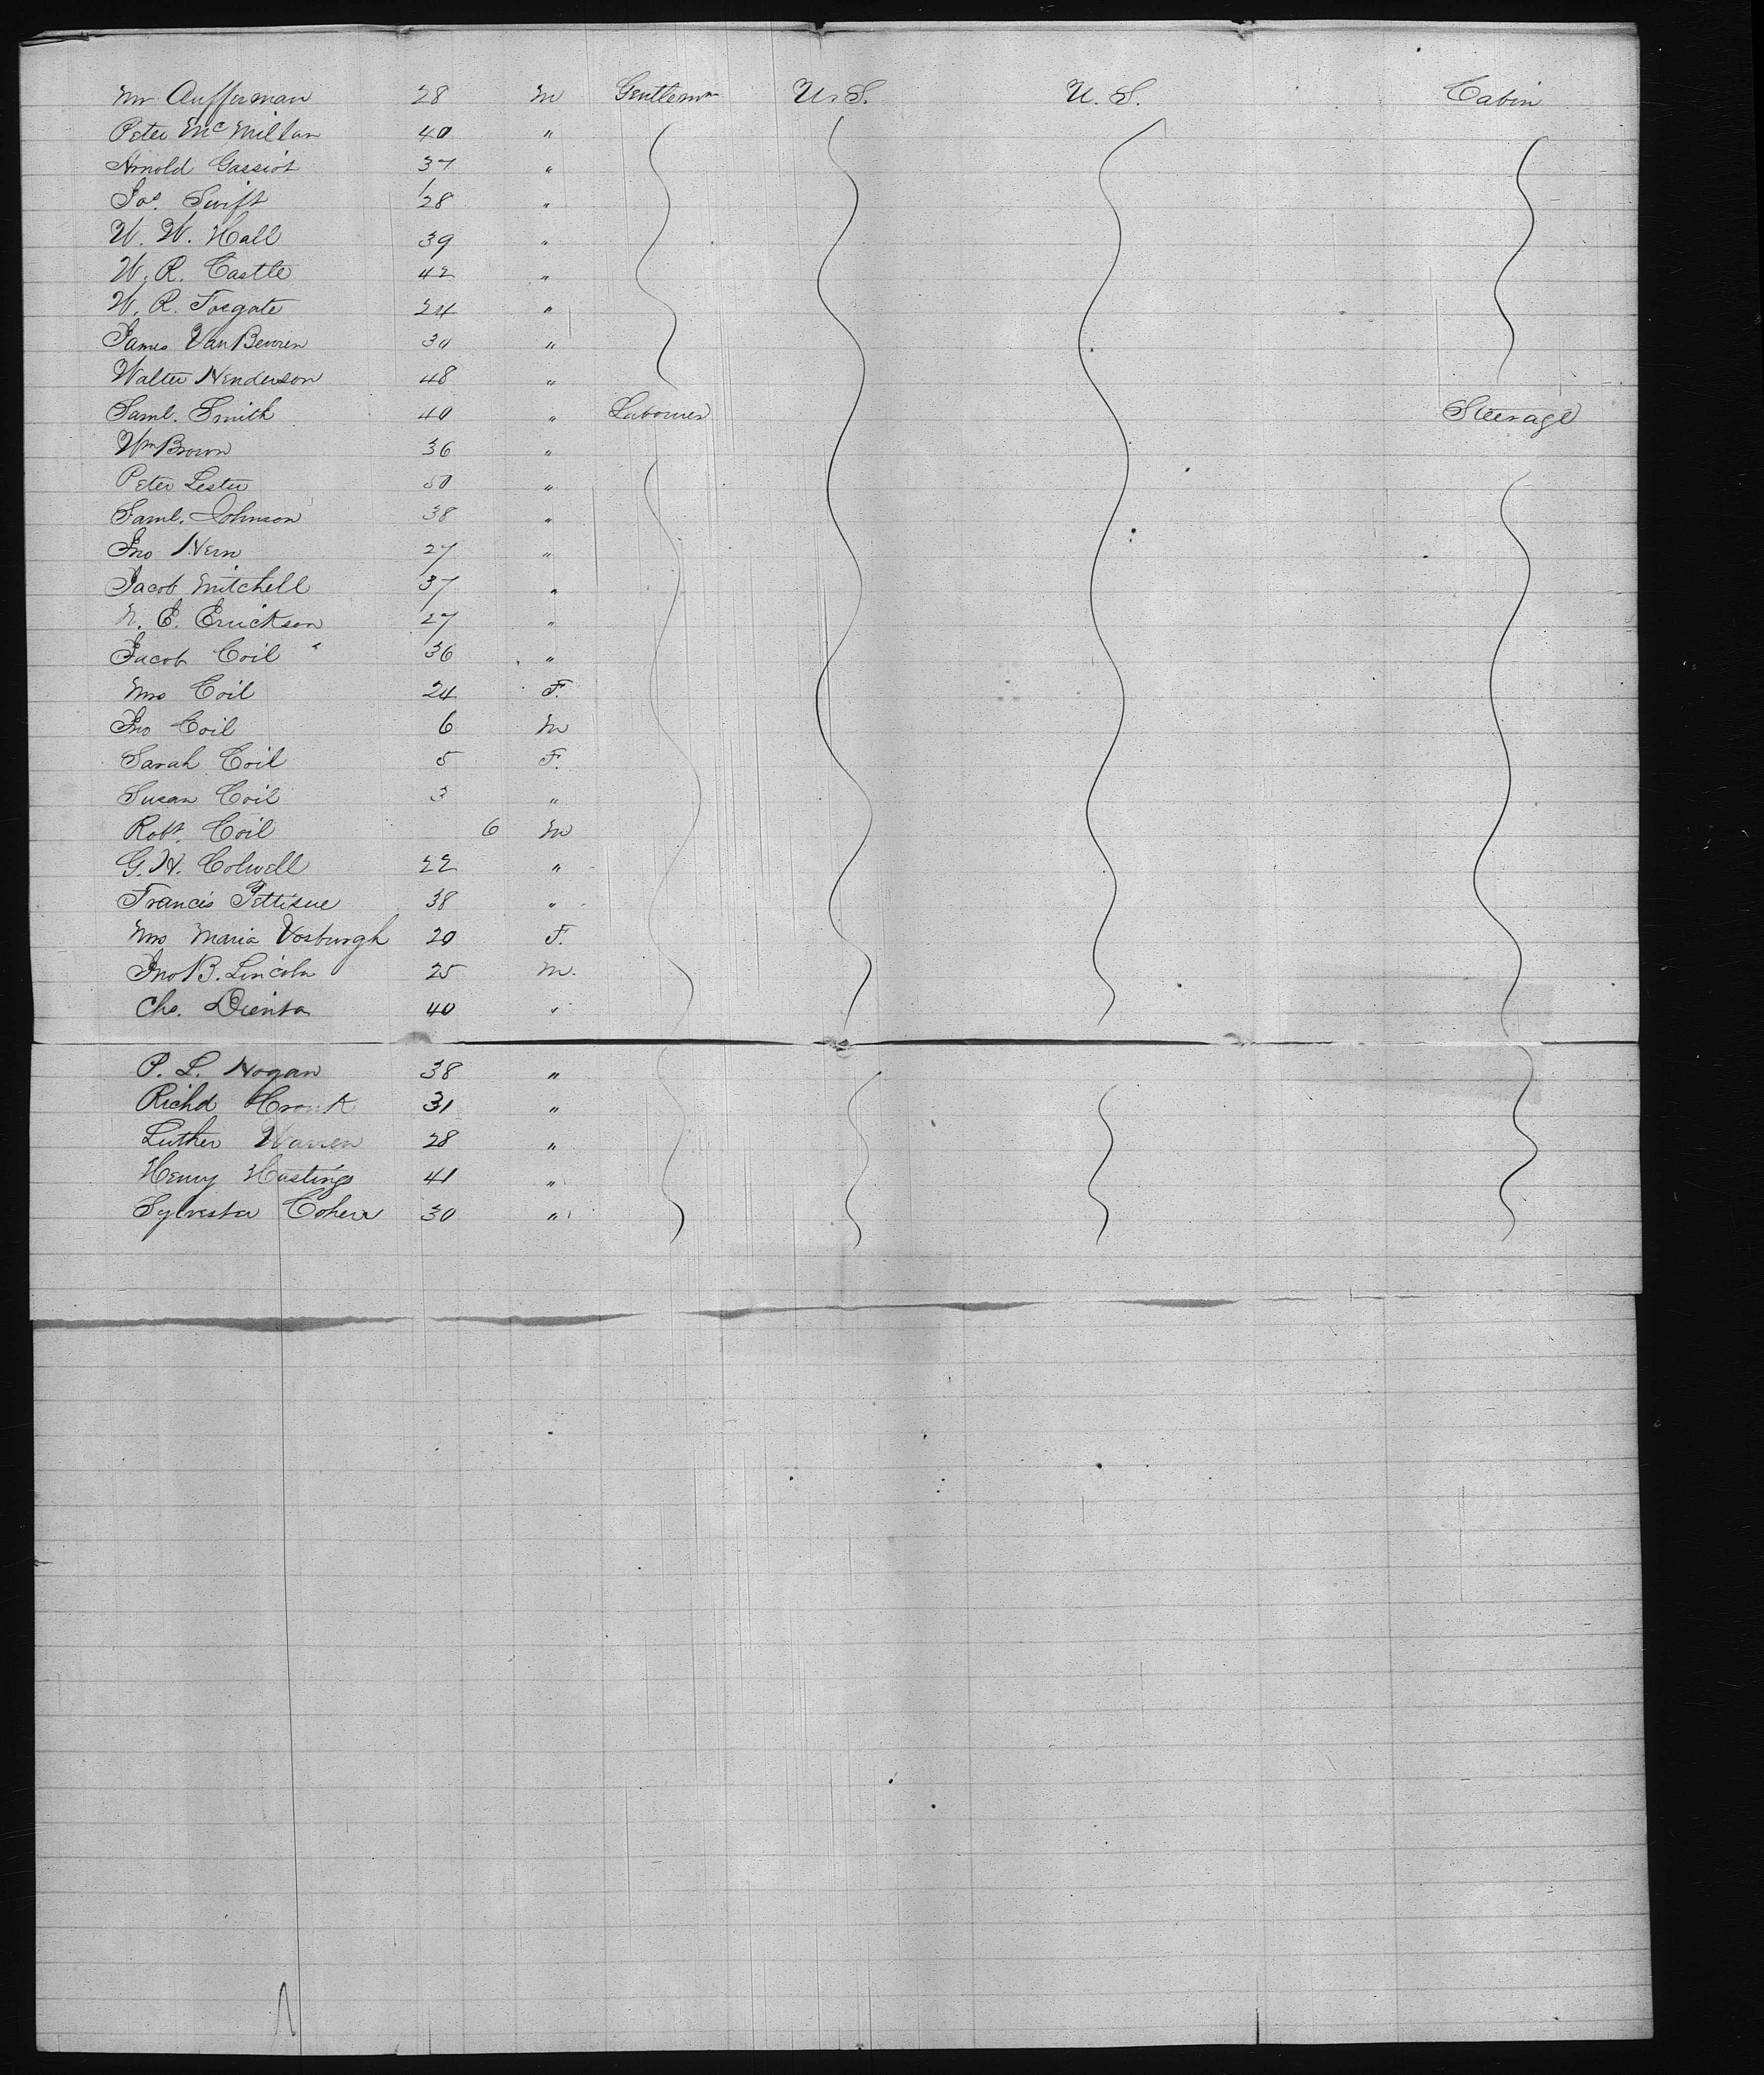 Mr Aufferman 28 M Gentleman U.S. U.S. Cabin
Peter McMillan 40 "
Arnold Gassiot 37 "
Jos. Swift 28 "
W. W. Hall 39 "
W. R. Castle 42 "
W. R. Forgate 24 "
James Van Beuren 30 "
Walter Henderson 48 "
Saml. Smith 40 " Labourer Steerage
Wm Brown 36 "
Peter Lester 50 "
Saml. Johnson 38 "
Jno Hern 27 "
Jacob Mitchell 37 "
N. E. Erickson 27 "
Jacob Coil 36 "
Mrs Coil 24 F.
Jno Coil 6 M
Sarah Coil 5 F.
Susan Coil 3 "
Robt. Coil 6 M
G. H. Colwell 22 "
Francis 38 "
Mrs Maria Vosburgh 20 F.
Jno B. Lincoln 25 M.
Chs. 40 "
P. L. Hogan 38 "
Richd 31 "
Luther Warren 28 "
Henry Hastings 41 "
Sylvester Cohen 30 "